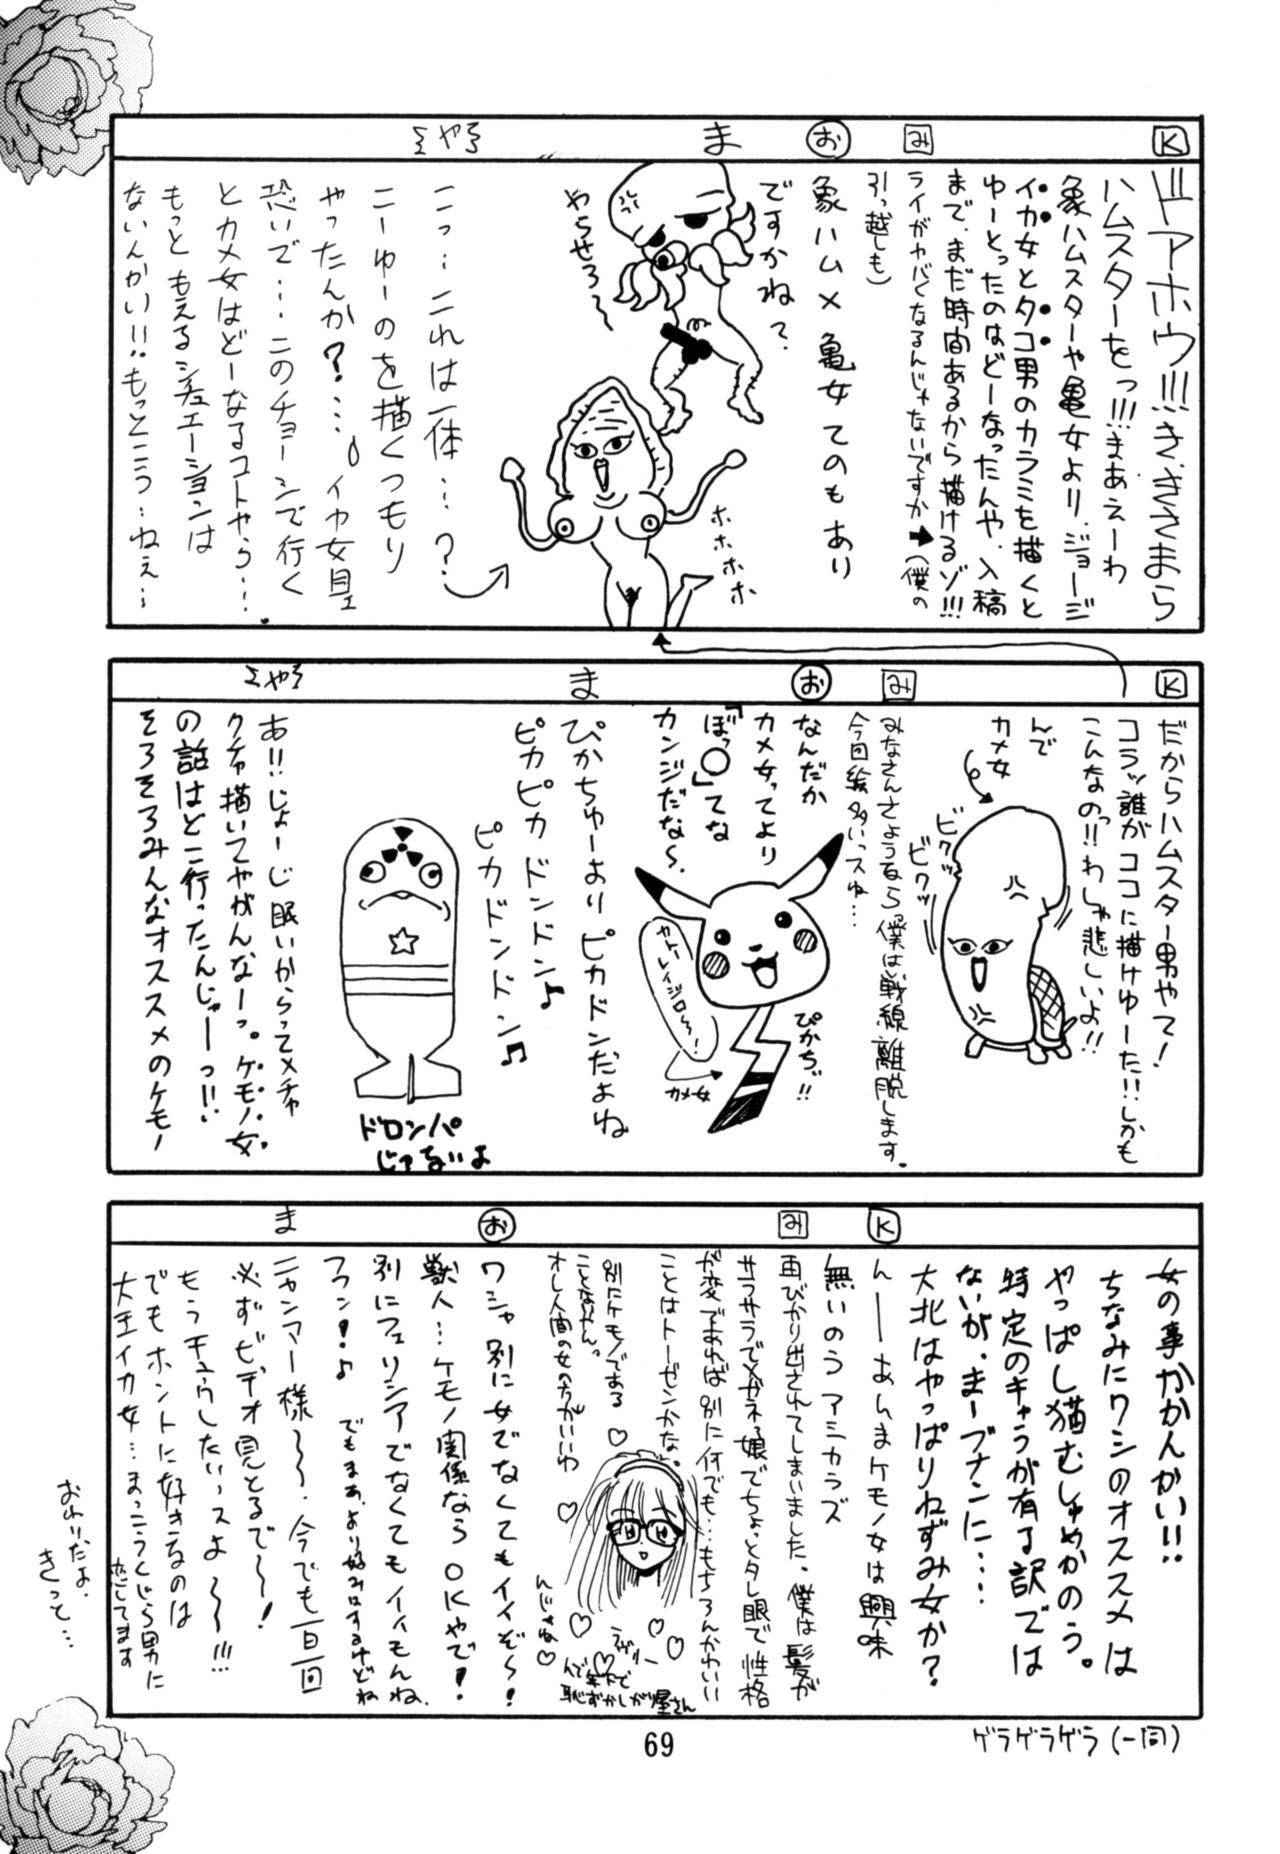 K
ドアホウ!!!き、きさまら
ハムスターをっ!!!まあえーわ
象ハムスターや亀女より、ジョージ
イカ女とタコ男のカラミを描くと
ゆーとったのはどーなったんや、入稿
まで、まだ時間あるから描けるゾ!!!
み
ライがヤバくなるんじゃないですか➡(僕の
引っ越しも)
お
ですかね?
象ハム×亀女てのもあり
ま
やらせろ〜
ホホホホ
ミやろ
こっ…これは一体…?
こーゆーのを描くつもり
やったんか?…イカ女星
恐いで…このチョーシで行く
とカメ女はどーなるコトやら…
もっともえるシチュエーションは
ないんかい!!もっとこう…ねぇ…
K
だからハムスター男やて!
コラッ誰がココに描けゆーた!!しかも
こんなのっ!!わしゃ悲しいよ!!
んで
カメ女
ビクッ
ビクッ
み
みなさんさようなら僕は戦線離脱します。
今回絵多いっスね…
お
なんだか
カメ女ってより
「ぼっ〇」てな
カンジだな〜
ぴかちゅ!!
カメ女
ま
ぴかちゅーよりピカドンだよね
ピカピカドンドン♪
ピカドンドン♫
ドロンパ
じゃないよ
ミやろ
あ!!じょーじ眠いからってメチャ
クチャ描いてやがんなーっ。ケモノ女
の話はどこ行ったんじゃーっ!!
そろそろみんなオススメのケモノ
女の事かかんかい!!
ちなみにワシのオススメは
やっぱし猫むしゅめかのう。
特定のキャラが有る訳では
ないが、まーブナンに…
大北はやっぱりねずみ女か?
K
んーーあしまケモノ女は興味
無いのうアシカラズ
み
再びかり出されてしまいました。僕は髪が
サラサラでメガネっ娘でちょっとタレ眼で性格
が変であれば別に何でも…もちろんかわいい
ことはトーゼンかな。
別にケモノである
ことないやんっ
オレ人間の女の方がいいわ
んで年下で
恥ずかしがり屋さん
んじゃね♡
お
ワシャ別に女でなくてもイイぞ〜!
獣人…ケモノ関係ならOKやで!
別にフェリシアでなくてもイイもんね、
フフン!♪ でもまぁ、より好みはするけどね
ま
ニャンマー様〜、今でも一日一回
必ずビデオ見とるで〜!
もうチュウしたいっスよ〜!!!
でもホントに好きなのは
大王イカ女…まっこうくじら男に
恋してます
おわりだよ、
きっと…
ゲラゲラゲラ(一同)
69